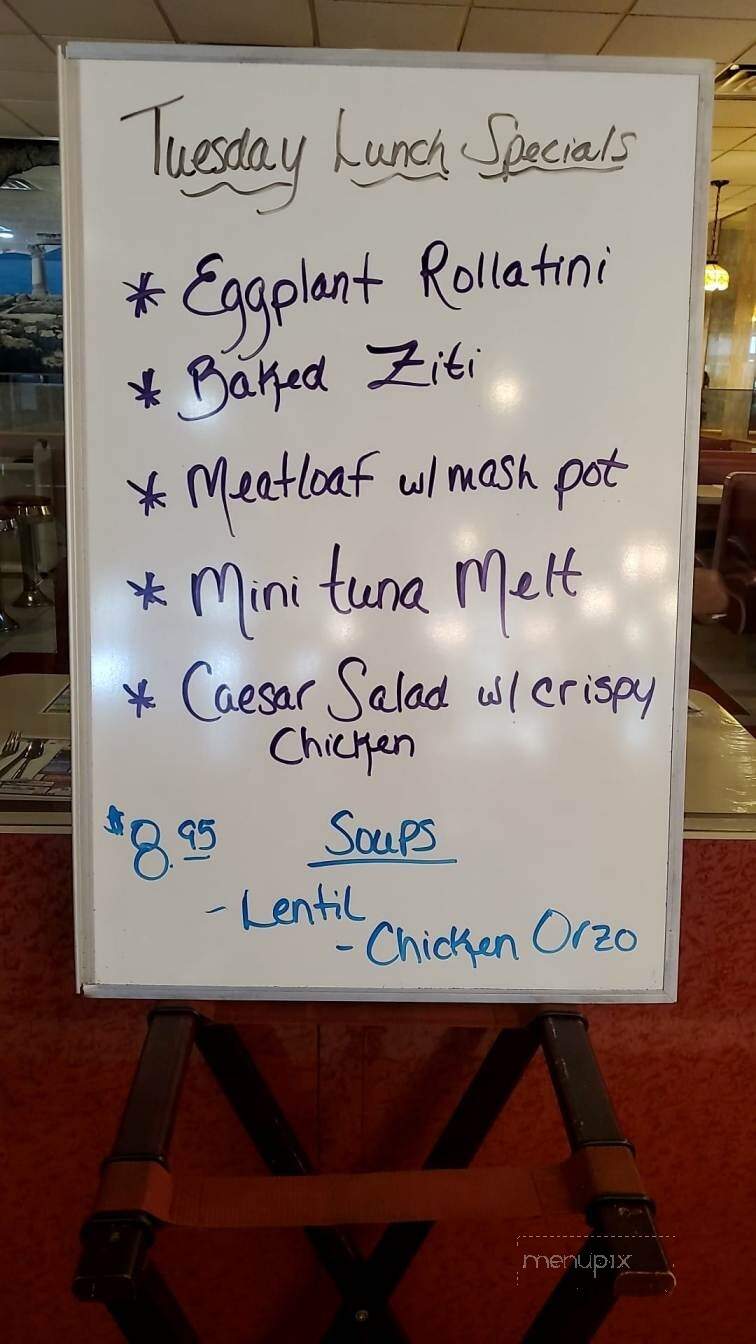 Tuesday Lunch Specials
* Eggplant Rollatini
* Baked Ziti
* Meatloaf w/ mash pot
* Mini tuna Melt
* Caesar Salad w/ crispy
Chicken
$8.95 Soups
- Lentil
- Chicken Orzo
menupix